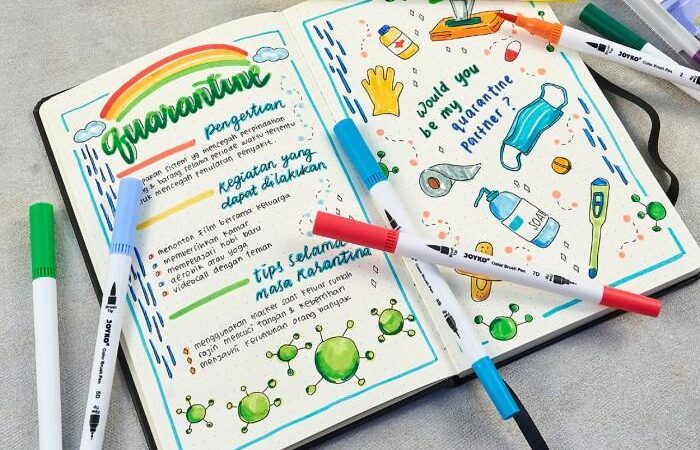 quarantine
Pengertian
sistem yg mencegah perpindahan
& barang selama periode waktu tertentu
untuk mencegah penularan penyakit.
Kegiatan yang
dapat dilakukan
menonton film bersama keluarga
membersihkan kamar
mempelajari hobi baru
aerobik atau yoga
videocall dengan teman
tips selama
masa karantina
menggunakan masker saat keluar rumah
rajin mencuci tangan & kebersihan
menjauhi kerumunan orang banyak
Would you
be my
quarantine
partner?
SOAP
JOYKO Color Brush Pen
JOYKO Color Brush Pen
JOYKO Color Brush Pen 7D